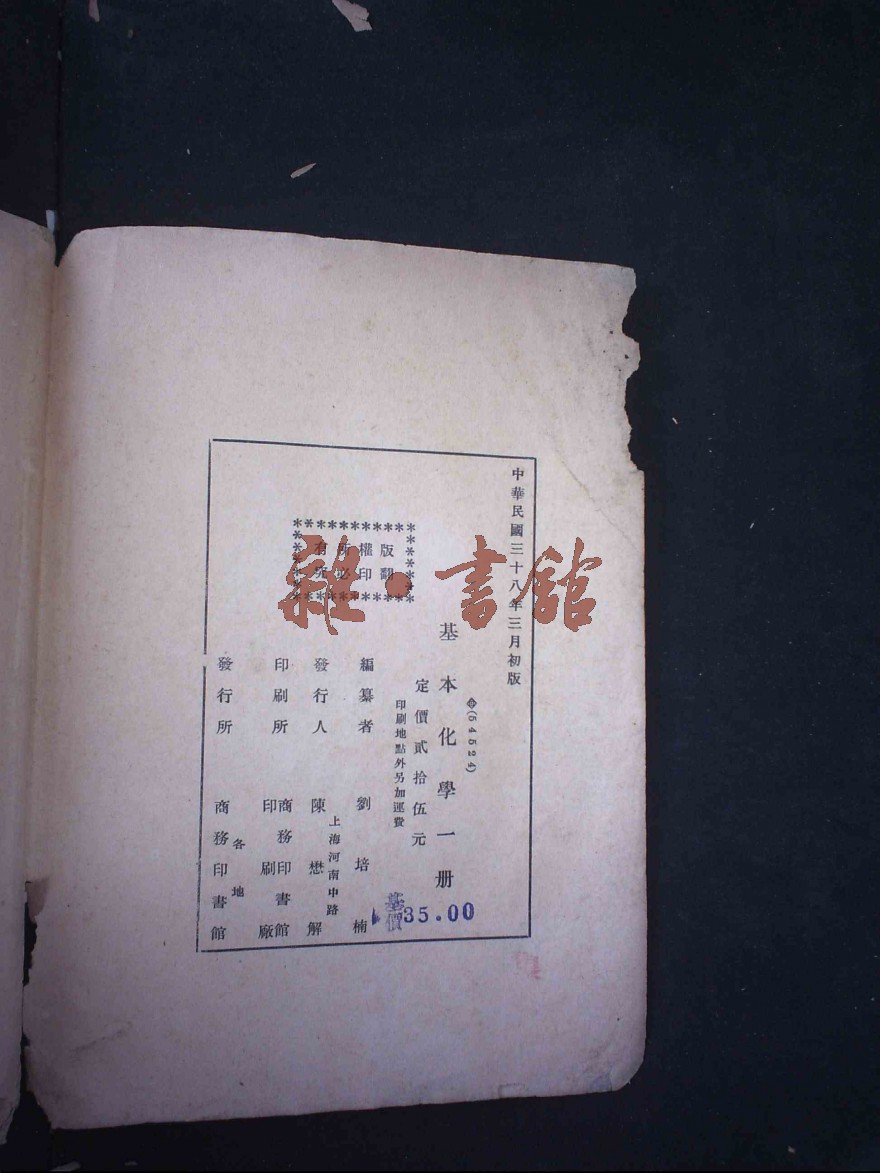 中華民國三十八年三月初版
(54524)
基本化學一册
定價貳拾伍元
印刷地點外另加運費
基價 35.00
版權所有
翻印必究
編纂者 劉培楠
上海河南中路
發行人 陳懋解
印刷所 商務印書館
印刷廠
各地
發行所 商務印書館
雜·書館